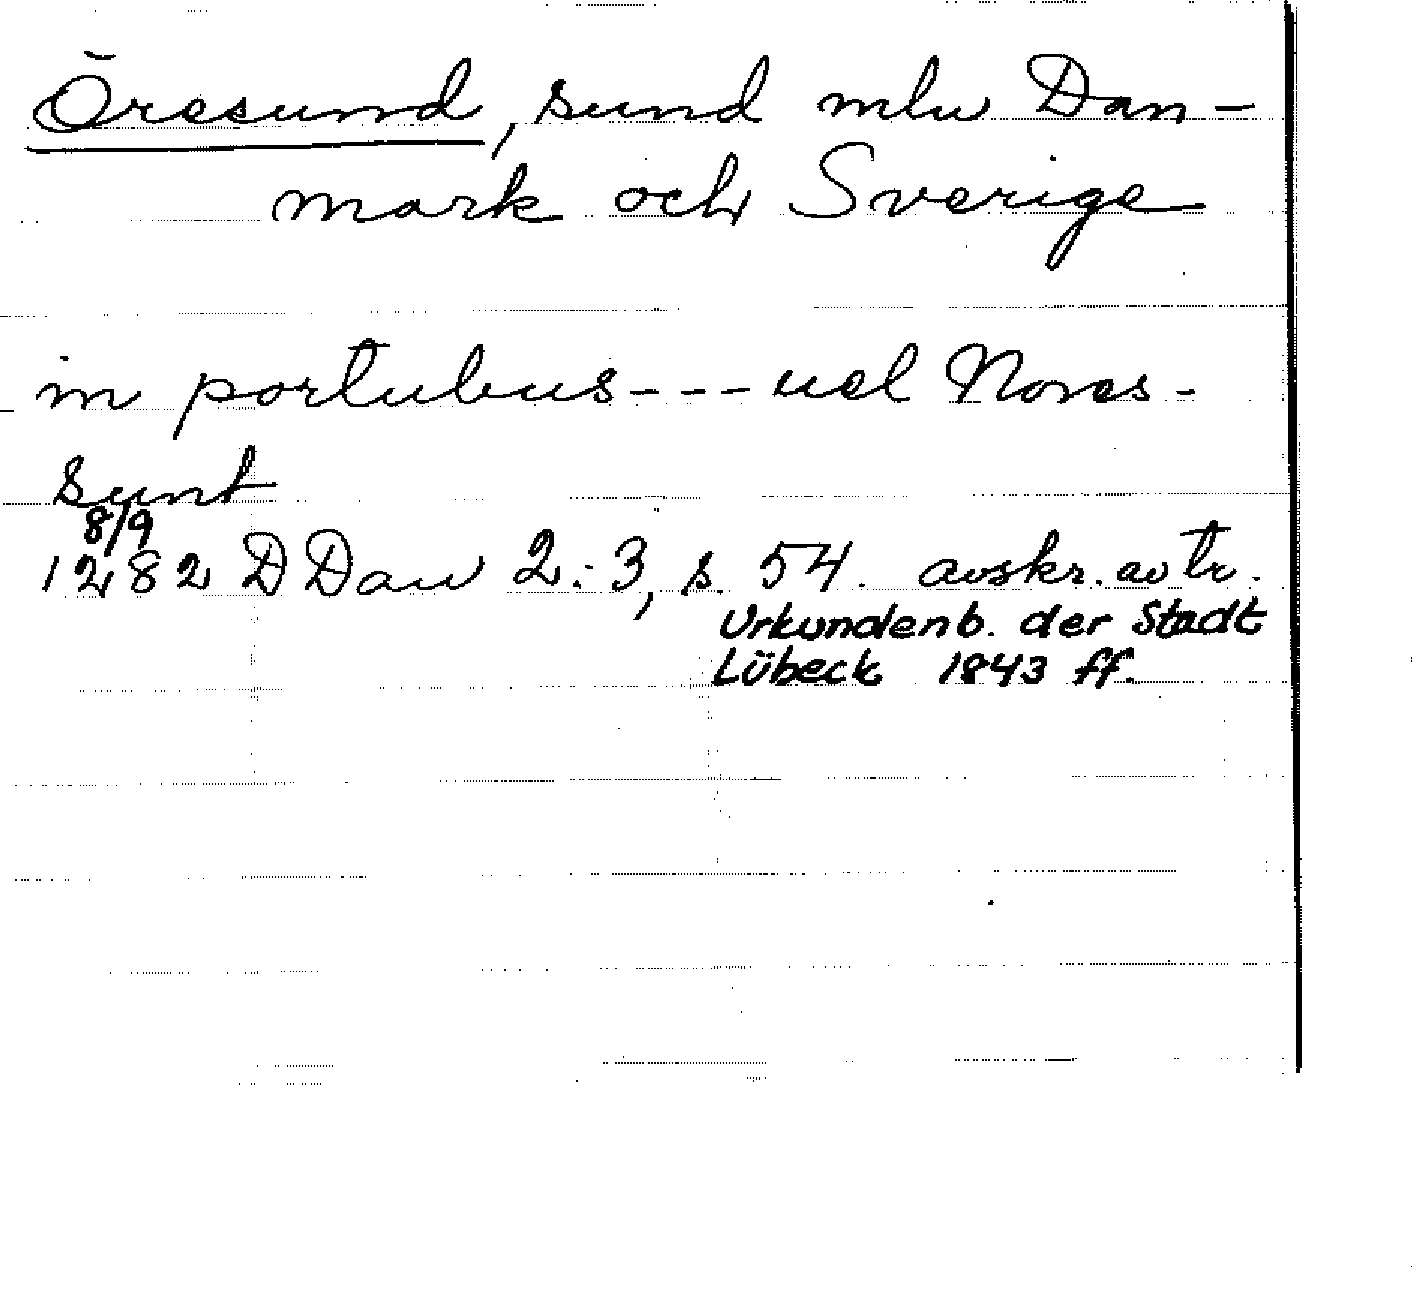 Öresund, sund mlu Dan-
mark och Sverige
in portubus --- uel Nores-
sunt
8/9
1282 DDan 2:3, s. 54. avskr. av tr.
Urkundenb. der Stadt
Lübeck 1843 ff.